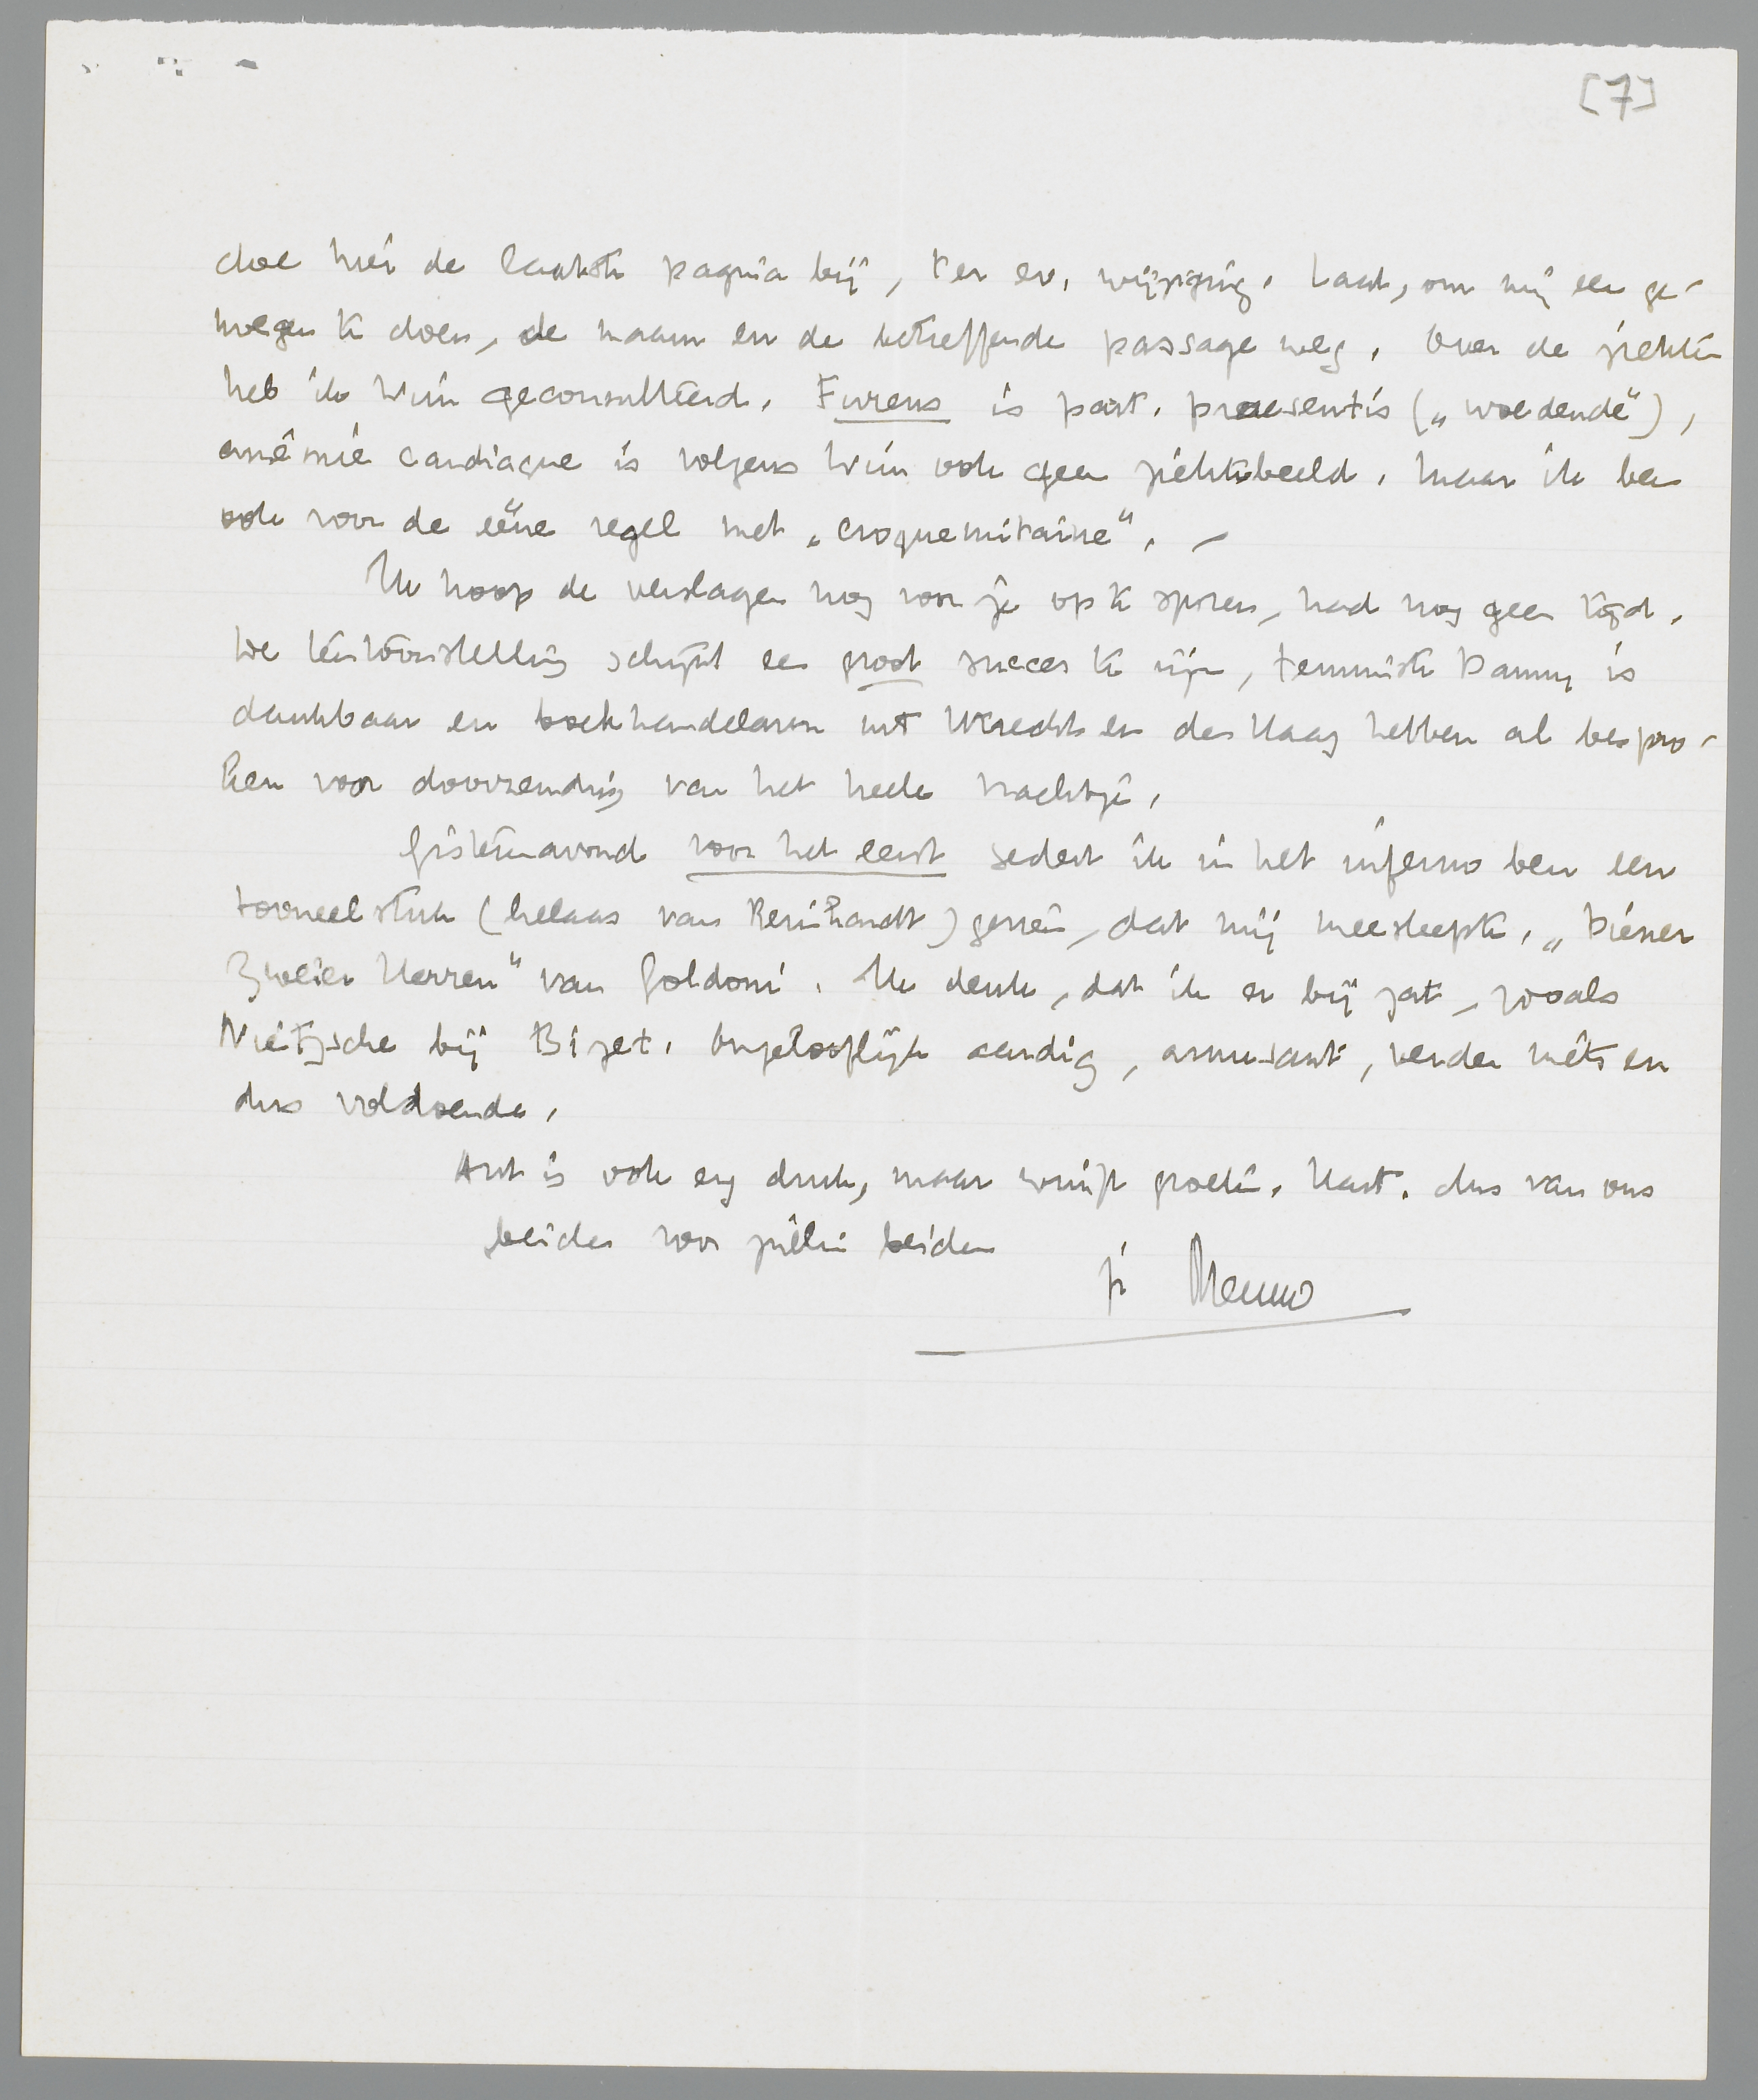 [7]
doe hier de laatste pagina bij, ter ev. wijziging. Laat, om mij een ge-
noegen te doen, de naam en de betreffende passage weg. Over de ziekten
heb ik Wim geconsulteerd. Furens is part. praesentis („woedende"),
anémie cardiaque is volgens Wim ook geen ziektebeeld. Maar ik ben
ook voor de eéne regel met „croquemitaine". –
Ik hoop de verslagen nog voor je op te sporen, had nog geen tijd.
De tentoonstelling schijnt een groot succes te zijn, tenminste Danny is
dankbaar en boekhandelaren uit Utrecht en den Haag hebben al bespro-
ken voor doorzending van het heele vrachtje.
Gisterenavond voor het eerst sedert ik in het inferno ben een
tooneelstuk (helaas van Reinhardt) gezien, dat mij meesleepte, „Diener
Zweier Herren" van Goldoni. Ik denk, dat ik er bij zat, zooals
Nietzsche bij Bizet. Ongelooflijk aardig, amusant, verder niets en
dus voldoende.
Ant is ook erg druk, maar wuift groeten. Hart. dus van ons
beiden voor jullie beiden
je Menno